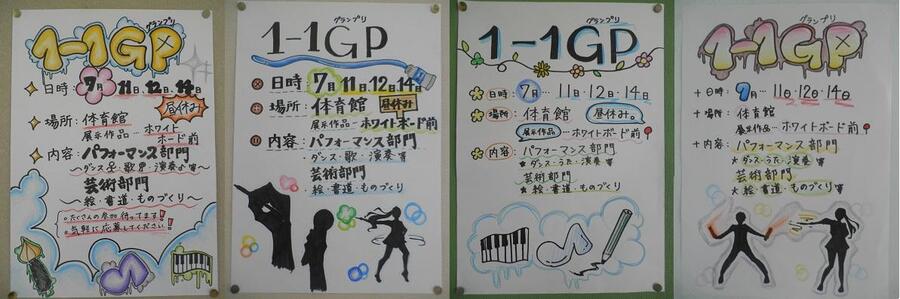 グランプリ
1-1GP
日時: 7月 11日、12日、14日
昼休み
場所: 体育館
展示作品…ホワイトボード前
内容: パフォーマンス部門
~ダンス・歌・演奏~
芸術部門
~絵・書道・ものづくり~
。たくさんの参加待ってます!
。気軽に応募してください!
グランプリ
1-1GP
日時: 7月11日、12日、14日
場所: 体育館 昼休み
展示作品…ホワイトボード前
内容: パフォーマンス部門
・ダンス・歌・演奏
芸術部門
・絵・書道・ものづくり
グランプリ
1-1GP
日時: 7月… 11日・12日・14日
場所: 体育館 昼休み。
展示作品…ホワイトボード前
内容: パフォーマンス部門
★ダンス・うた・演奏
芸術部門
★絵・書道・ものづくり
グランプリ
1-1GP
+日時: 7月…11日、12日、14日
+場所: 体育館
展示作品…ホワイトボード前
+内容: パフォーマンス部門
★ダンス・うた・演奏
芸術部門
★絵・書道・ものづくり